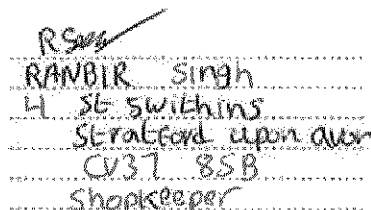 RANBIR Singh
4 St Swithins
Stratford upon avon
CV37 8SB
Shopkeeper